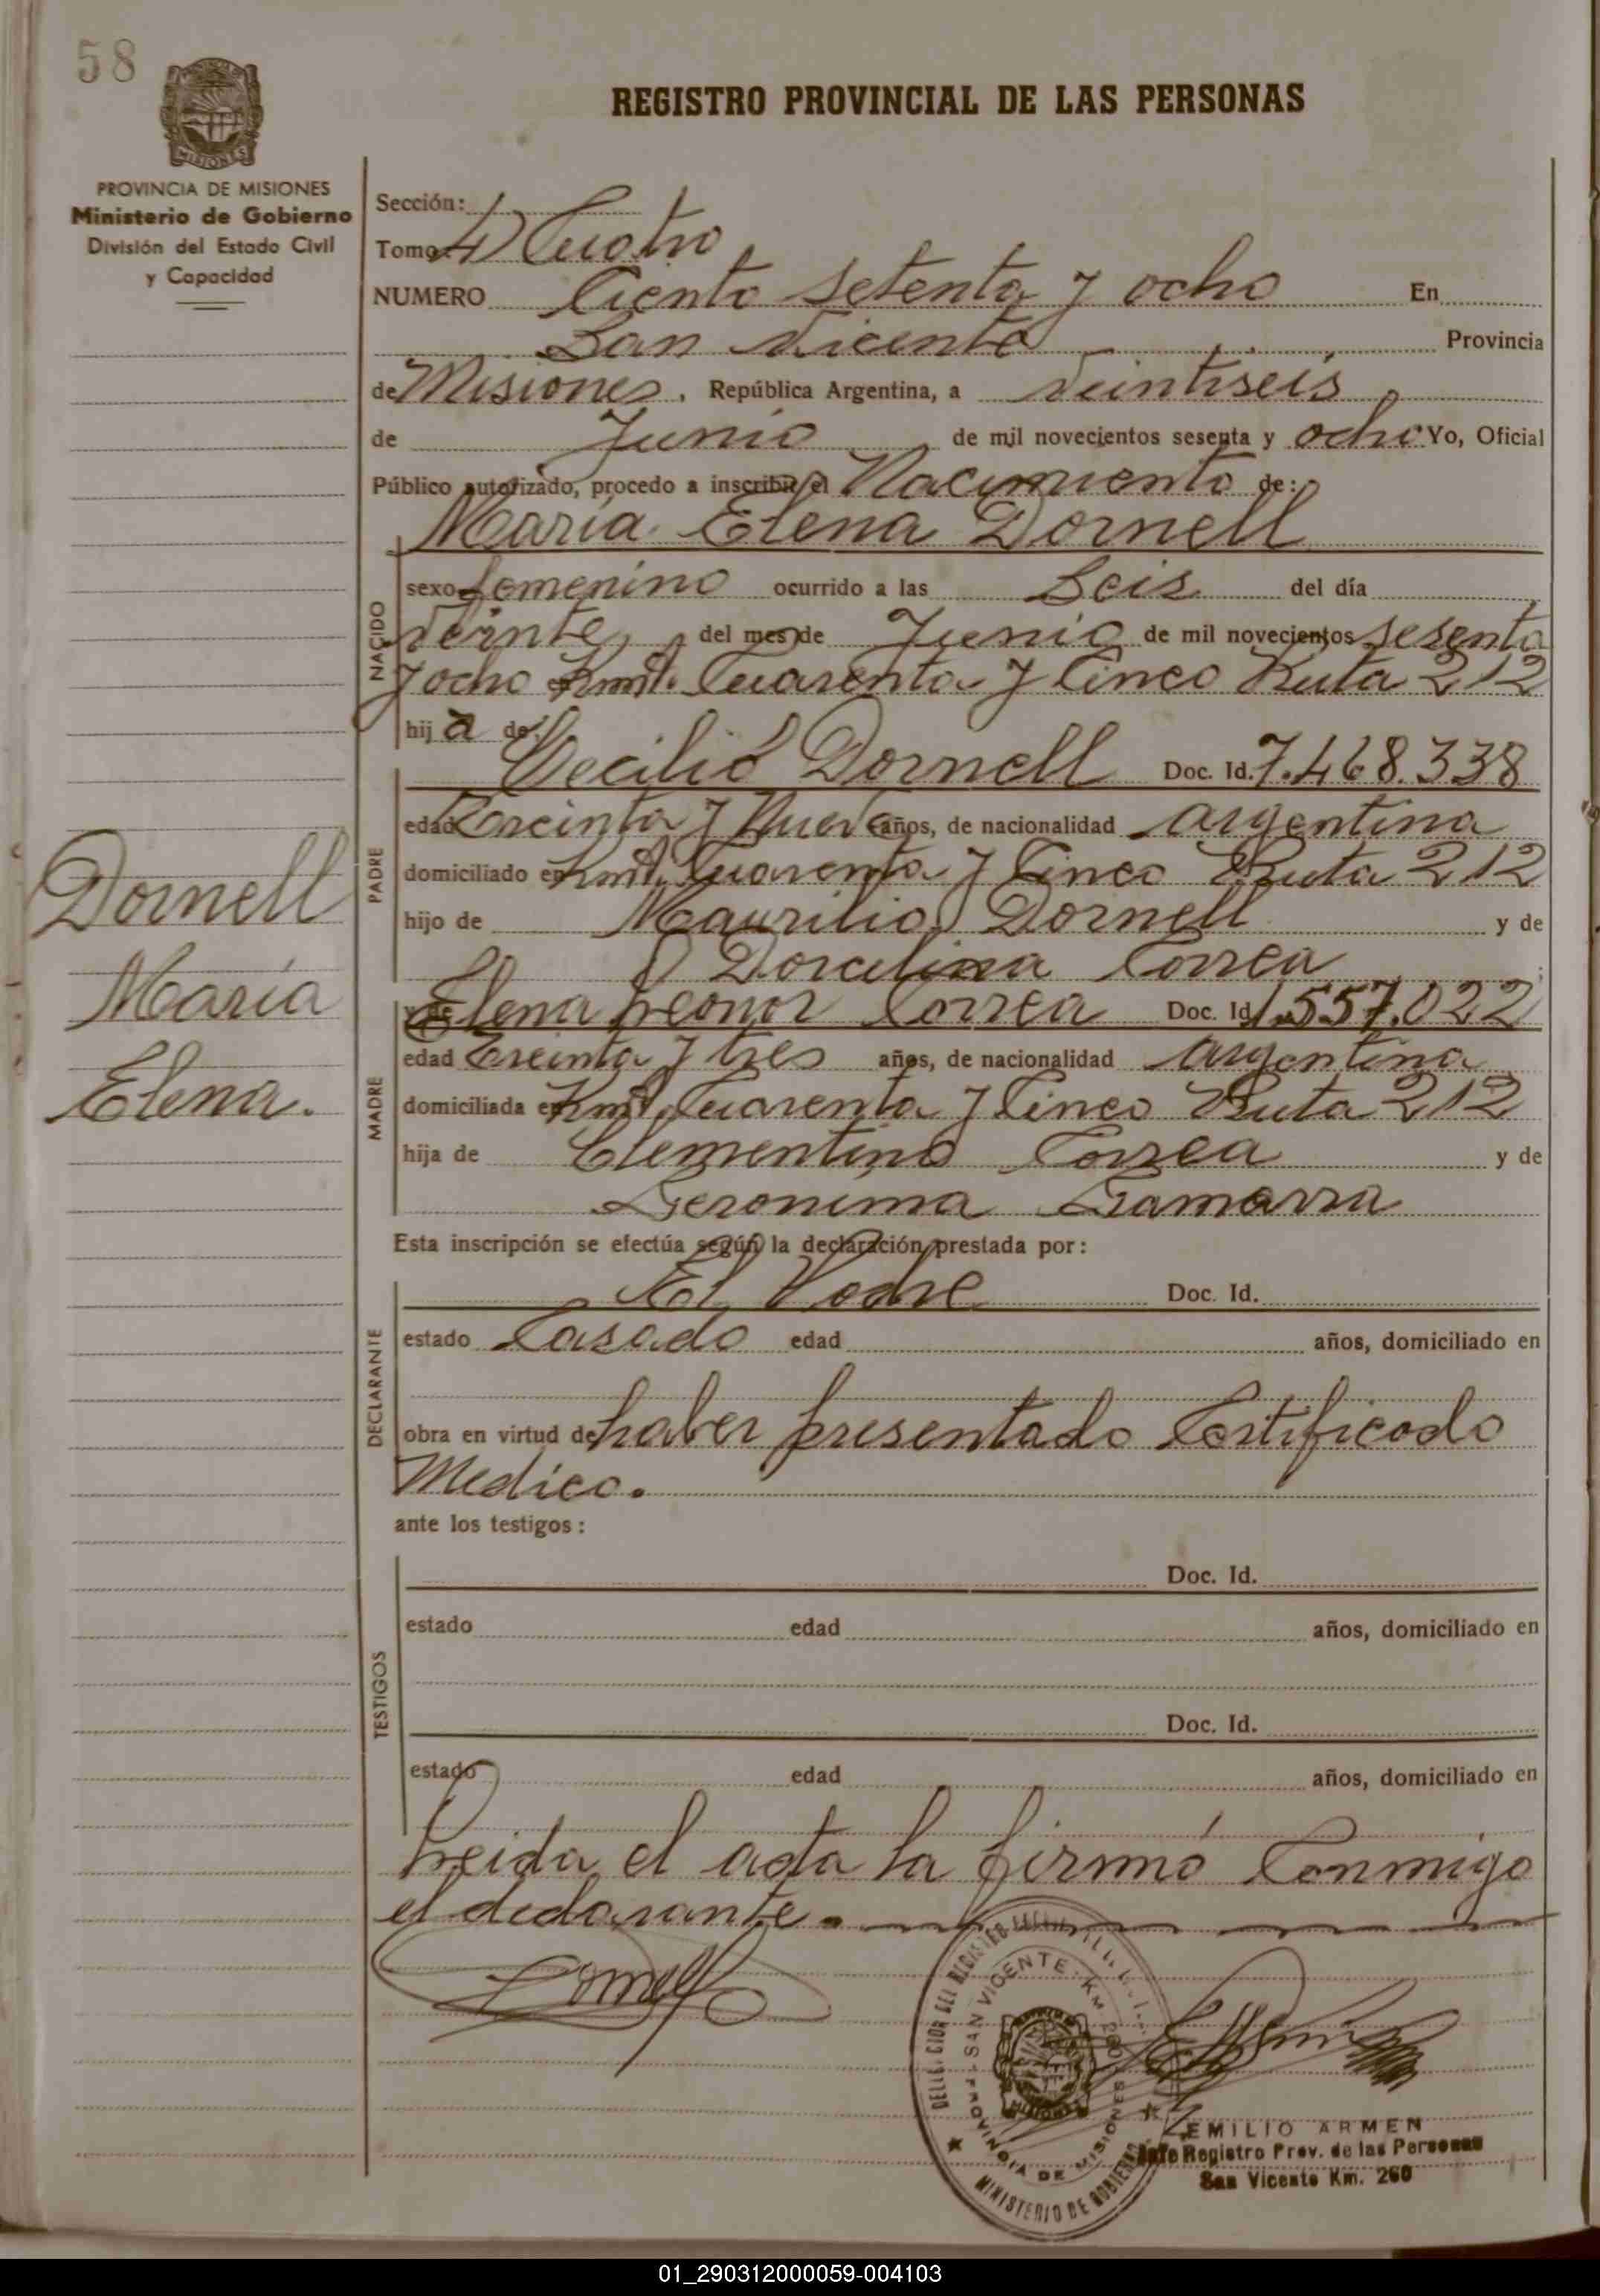 58
REGISTRO PROVINCIAL DE LAS PERSONAS
MISIONES
PROVINCIA DE MISIONES
Ministerio de Gobierno
División del Estado Civil
y Capacidad
Sección:
Tomo 4 Cuatro
NUMERO Ciento Setenta y ocho En
San Vicente Provincia
de Misiones, República Argentina, a veintiseis
de Junio de mil novecientos sesenta y ocho Yo, Oficial
Público autorizado, procedo a inscribir el Nacimiento de:
María Elena Dornell
NACIDO
sexo femenino ocurrido a las Seis del día
veinte del mes de Junio de mil novecientos sesenta
y ocho Kmt. Cuarenta y Cinco Ruta 212
hija de:
Cecilio Dornell Doc. Id. 7.468.338
PADRE
edad Treinta y Nueve años, de nacionalidad argentina
domiciliado en Kmt. Cuarenta y Cinco Ruta 212
hijo de Maurilio Dornell y de
Dorcelina Correa
Dornell
María
Elena.
Elena Leonor Correa Doc. Id. 1.557.022
MADRE
edad Treinta y tres años, de nacionalidad argentina
domiciliada en Kmt. Cuarenta y Cinco Ruta 212
hija de Clementino Correa y de
Geronima Gamarra
Esta inscripción se efectúa según la declaración prestada por:
El Padre Doc. Id.
DECLARANTE
estado Casado edad años, domiciliado en
obra en virtud de haber presentado Certificado
Medico.
ante los testigos:
Doc. Id.
TESTIGOS
estado edad años, domiciliado en
Doc. Id.
estado edad años, domiciliado en
Leida el acta la firmó Conmigo
el declarante.
Dornell
SAN VICENTE KM 260
PROVINCIA DE MISIONES
MINISTERIO DE GOBIERNO
EMILIO ARMEN
Jefe Registro Prov. de las Personas
San Vicente Km. 260
01_290312000059-004103